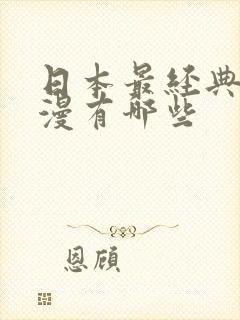 日本最经典
漫有那些
恩顾